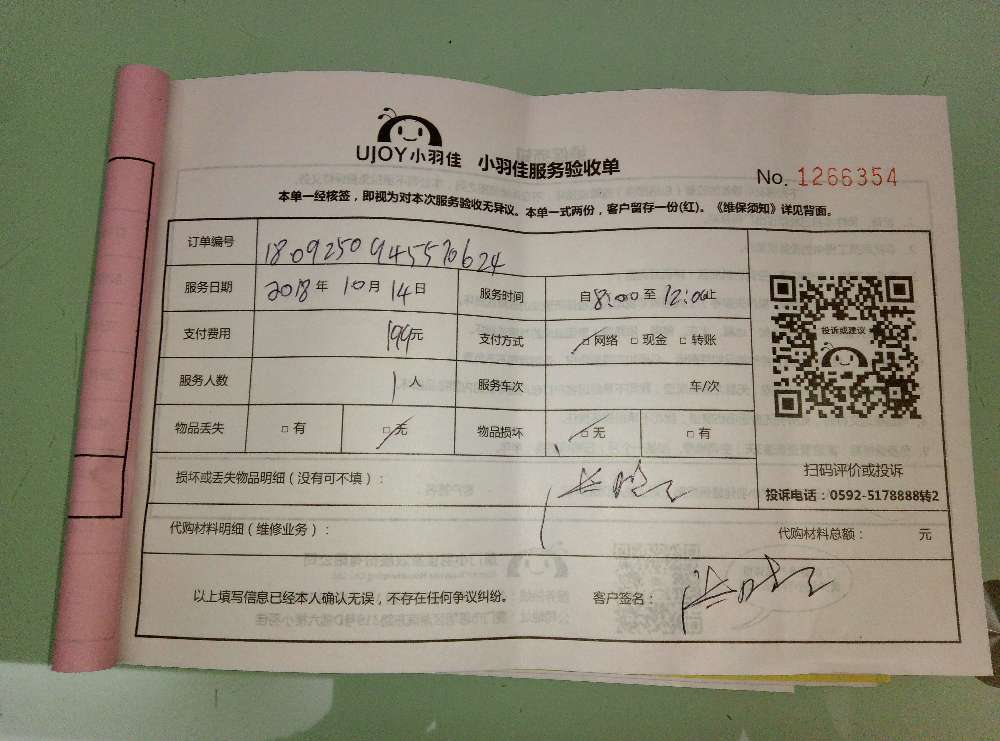 UJOY小羽佳 小羽佳服务验收单
No. 1266354
本单一经核签，即视为对本次服务验收无异议。本单一式两份，客户留存一份(红)。《维保须知》详见背面。
订单编号 1809250945570624
服务日期 2018年10月14日 服务时间 自8:00至12:00止
支付费用 199元 支付方式 网络 □现金 □转账
服务人数 1人 服务车次 车/次
物品丢失 □有 无 物品损坏 无 □有
投诉或建议
扫码评价或投诉
投诉电话：0592-5178888转2
损坏或丢失物品明细（没有可不填）：
代购材料明细（维修业务）： 代购材料总额： 元
以上填写信息已经本人确认无误，不存在任何争议纠纷。 客户签名：